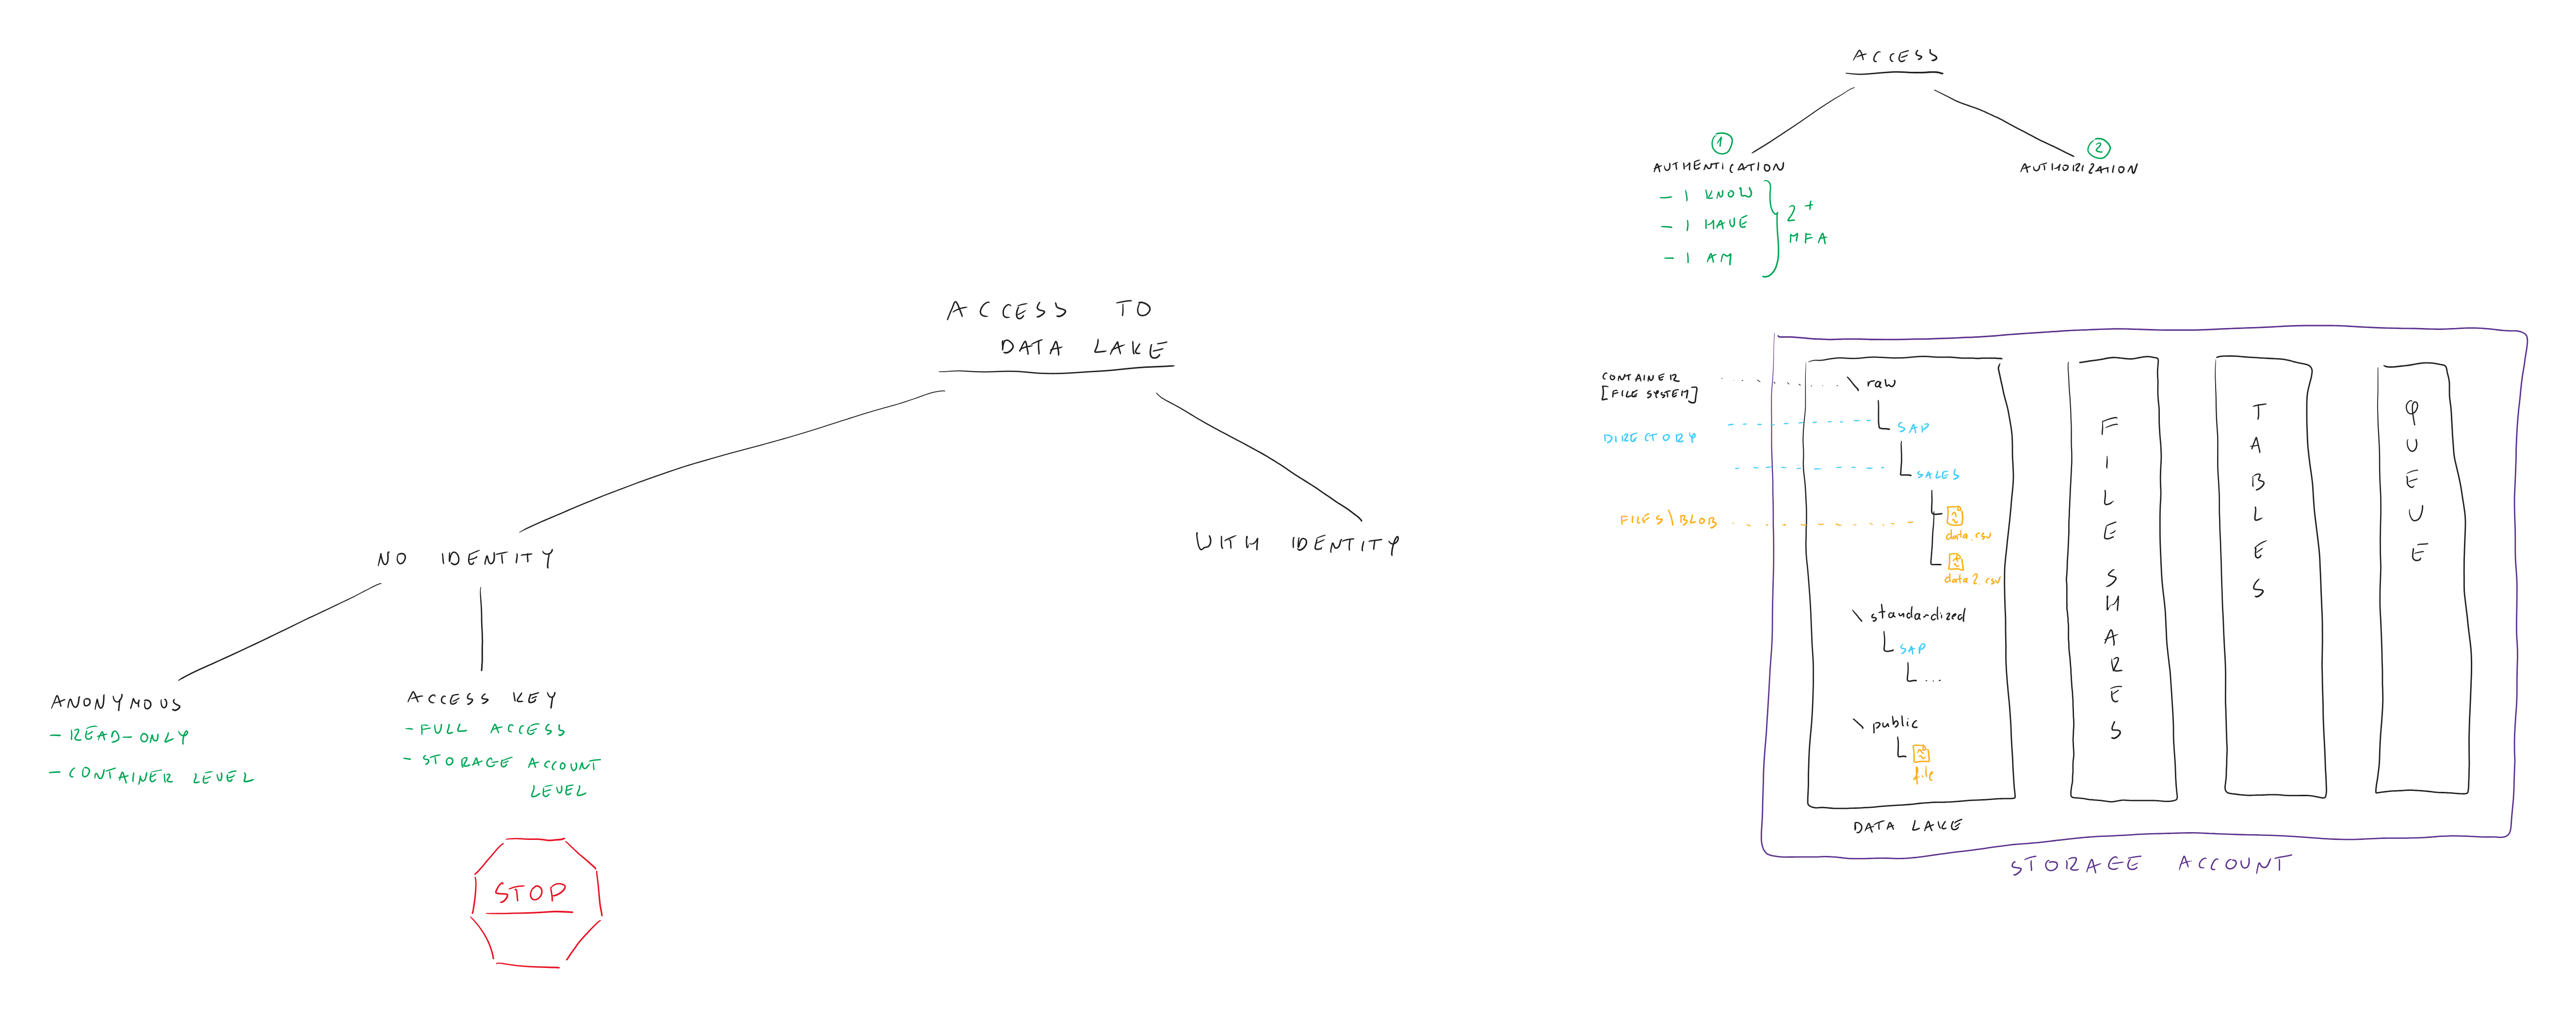 ACCESS TO
DATA LAKE
NO IDENTITY
WITH IDENTITY
ANONYMOUS
- READ-ONLY
- CONTAINER LEVEL
ACCESS KEY
- FULL ACCESS
- STORAGE ACCOUNT
LEVEL
STOP
ACCESS
1
AUTHENTICATION
- I KNOW
- I HAVE
- I AM
2+
MFA
2
AUTHORIZATION
CONTAINER
[FILE SYSTEM]
DIRECTORY
FILES\BLOB
\ raw
SAP
SALES
data.csv
data2.csv
\ standardized
SAP
...
\ public
file
DATA LAKE
FILE SHARES
TABLES
QUEUE
STORAGE ACCOUNT